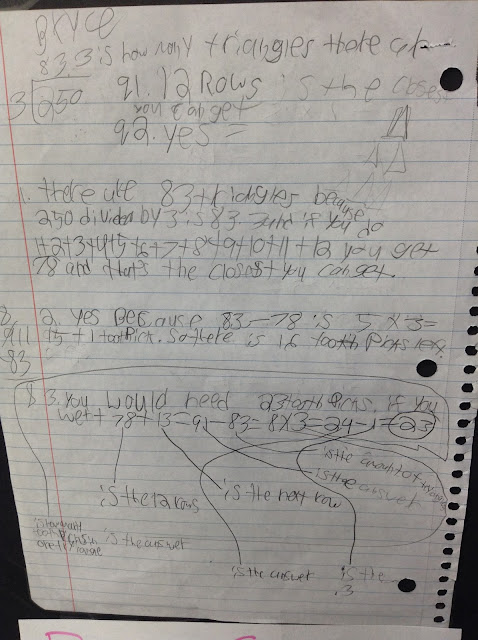 BRYCE
83.3 is how many triangles there
3 250
q1. 12 Rows is the closest
you can get
q2. yes =
1. there are 83 triangles because
250 divided by 3 is 83. and if you do
1+2+3+4+5+6+7+8+9+10+11+12 you get
78 and thats the closest you can get.
2. yes Because 83-78 is 5 x 3=
15 + 1 toothpick. So there is 16 tooth Picks left.
83
3. you would need 23 tooth Picks. if you
78+13=91-83=8x3=24-1=23
is the amount of triangles
is the answer
is the 12 rows
is the next row
is the answer
is the answer
is the
.3